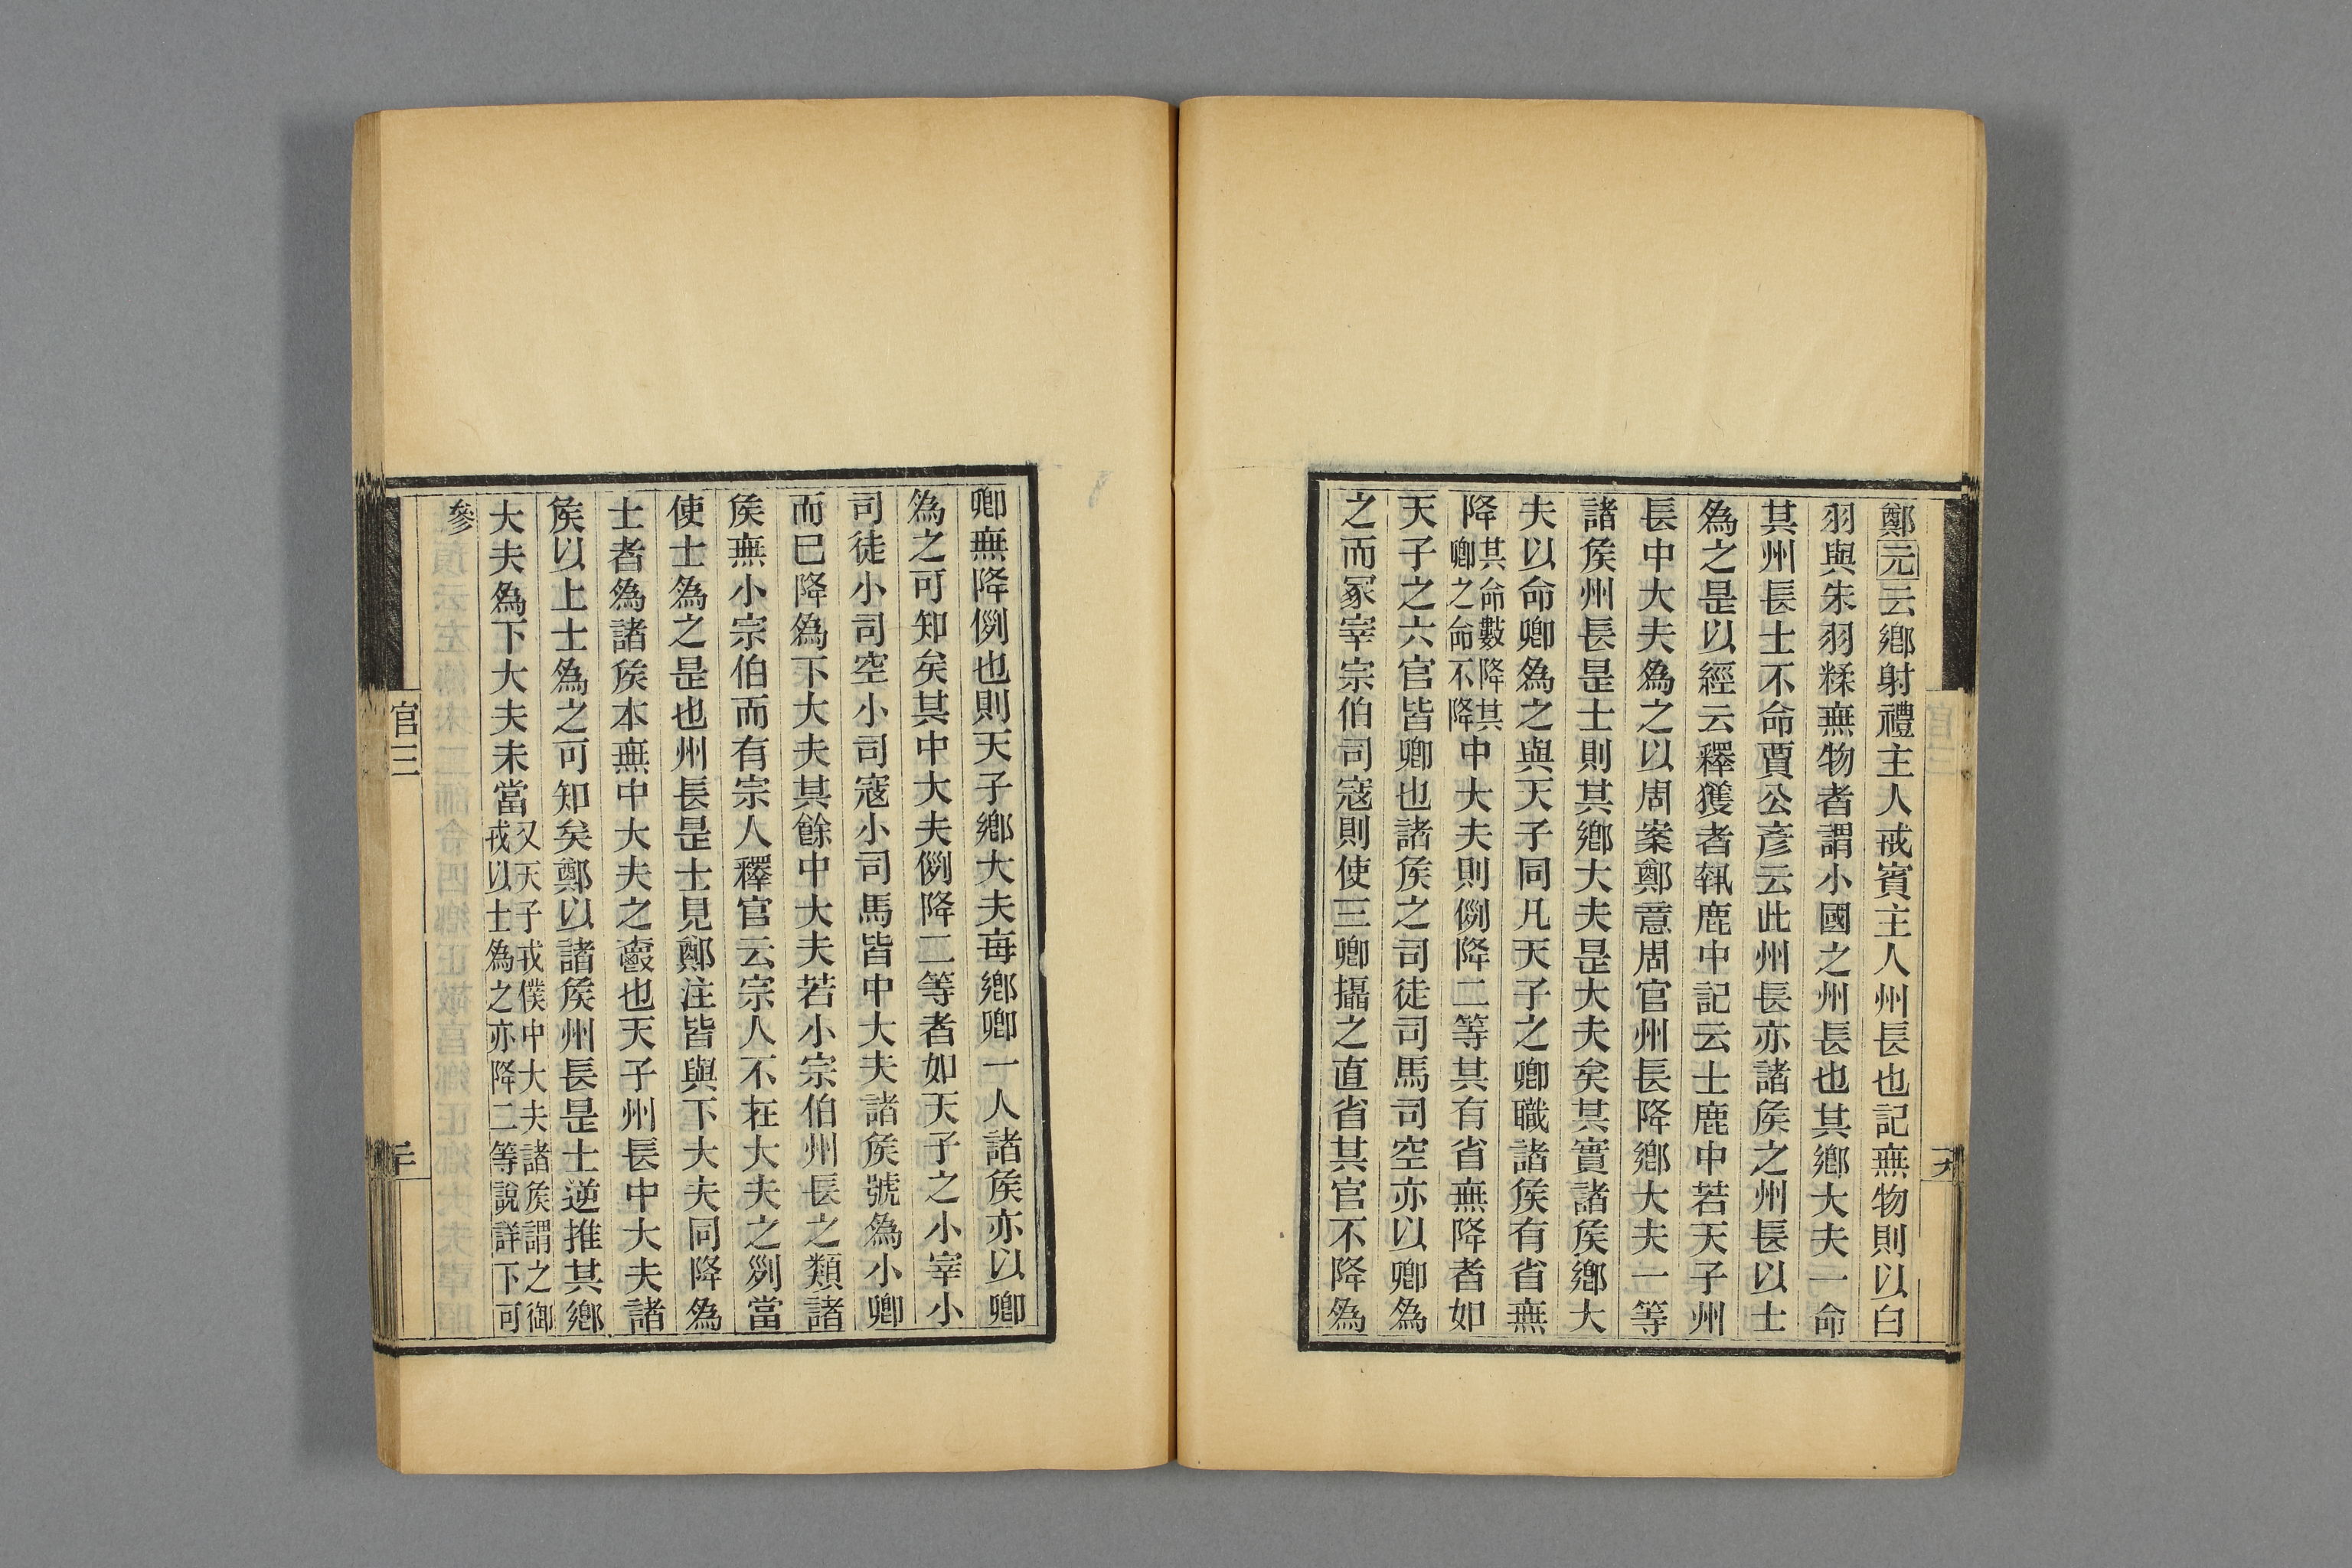 鄭元云鄉射禮主人戒賓主人州長也記無物則以白
羽與朱羽糅無物者謂小國之州長也其鄉大夫一命
其州長士不命賈公彥云此州長亦諸矦之州長以士
為之是以經云釋獲者執鹿中記云士鹿中若天子州
長中大夫為之以周案鄭意周官州長降鄉大夫一等
諸矦州長是士則其鄉大夫是大夫矣其實諸矦鄉大
夫以命卿為之與天子同凡天子之卿職諸矦有省無
降其命數降其卿之命不降中大夫則例降二等其有省無降者如
天子之六官皆卿也諸矦之司徒司馬司空亦以卿為
之而冢宰宗伯司寇則使三卿攝之直省其官不降為
卿無降例也則天子鄉大夫每鄉卿一人諸矦亦以卿
為之可知矣其中大夫例降二等者如天子之小宰小
司徒小司空小司寇小司馬皆中大夫諸矦號為小卿
而巳降為下大夫其餘中大夫若小宗伯州長之類諸
矦無小宗伯而有宗人釋官云宗人不在大夫之列當
使士為之是也州長是士見鄭注皆與下大夫同降為
士者為諸矦本無中大夫之爵也天子州長中大夫諸
矦以上士為之可知矣鄭以諸矦州長是士逆推其鄉
大夫為下大夫未當又天子戎僕中大夫諸矦謂之御戎以士為之亦降二等說詳下可
參
官三